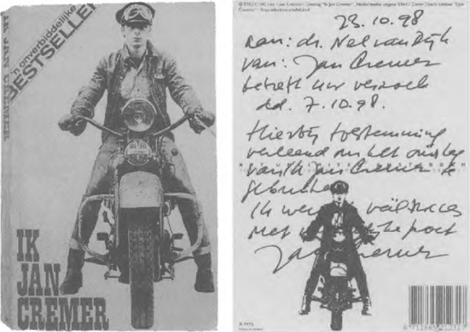 'n onverbiddelijke
BESTSELLER
IK JAN CREMER
IK
JAN
CREMER
23.10.98
aan: dr. Nel van Dijk
van: Jan Cremer
betreft uw verzoek
dd. 7.10.98.
Hierbij toestemming
verleend om het omslag
van Ik Jan Cremer te
gebruiken
Ik wens succes
Met
Jan Cremer